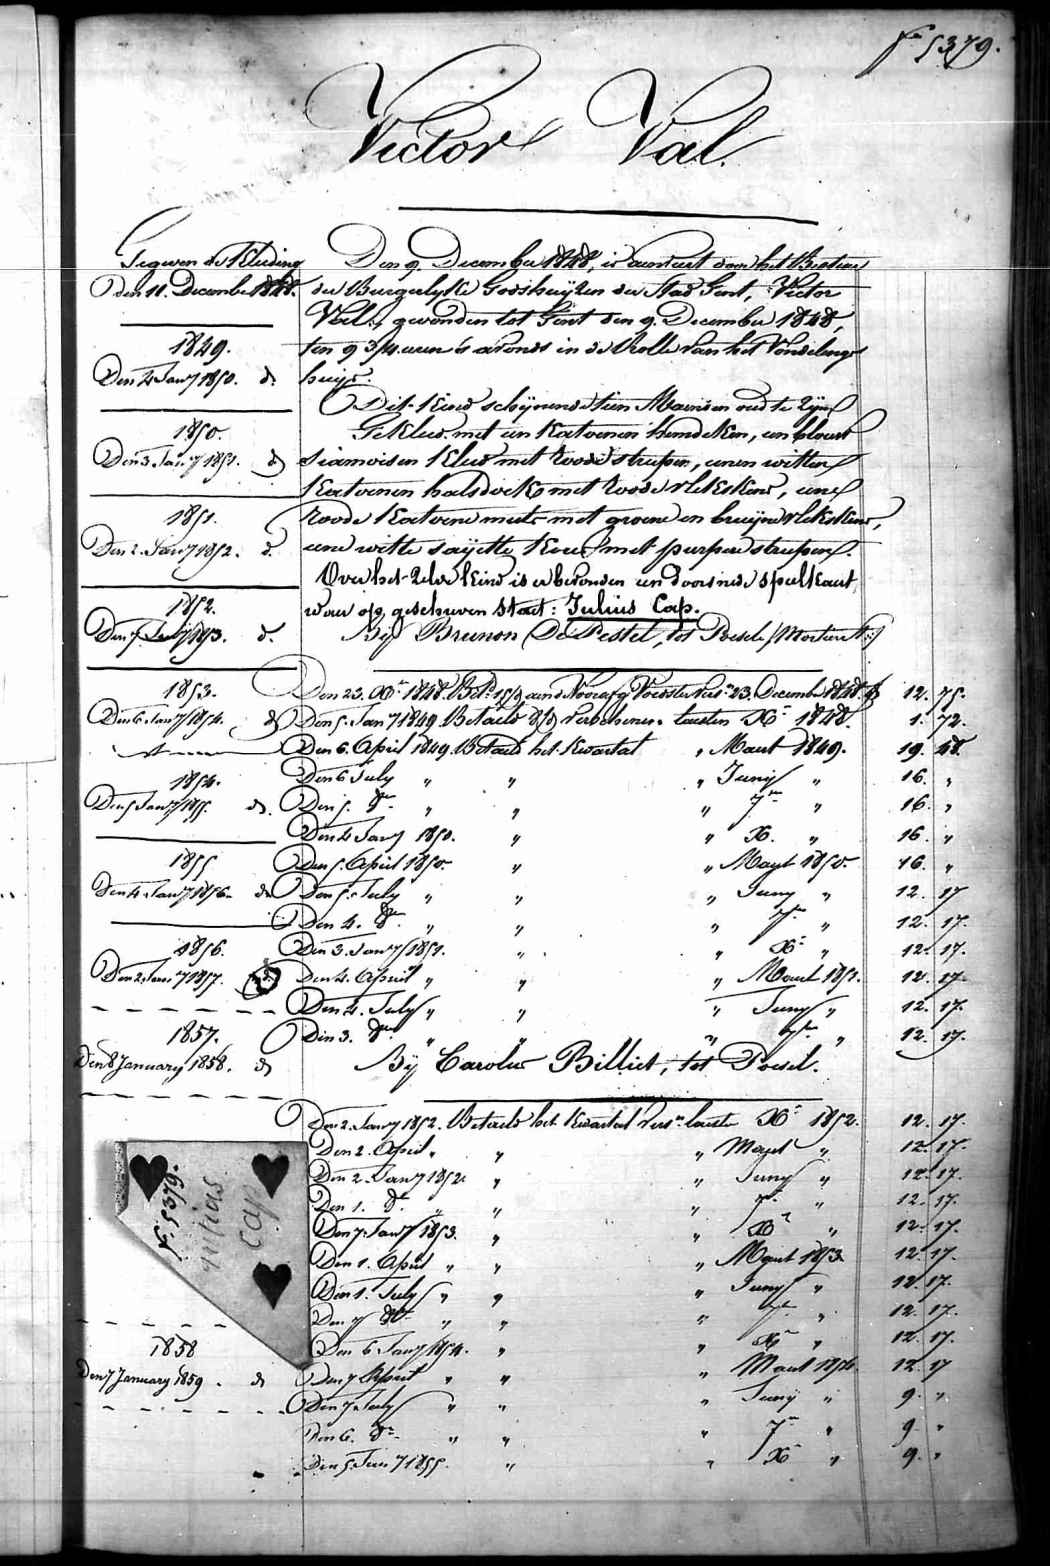 fo 5379.
Victor Val.
Gegeven de Kleeding
den 11. December 1848.
1849.
Den 4 Jany 1850. d.
1850.
Den 3. Jany 1851. d
1851.
Den 2. Jany 1852. d.
1852.
Den 7. 1853. d.
1853.
Den 6. Jany 1854. d
1854.
Den 5 Jany 1855. d.
1855
Den 4. Jany 1856. d
1856.
Den 2. Jany 1857.
1857.
Den 8 January 1858. d
1858
Den 7 January 1859. d
Den 9 December 1848, is aenveert door het Bestier
der Burgerlyke Godshuyzen der Stad Gent, Victor
Val., gevonden tot Gent den 9. December 1848,
ten 9 3/4 uren 's avonds in de Rolle van het Vondelings
huys.
Dit kind schynende tien Maenden oud te zyn
Gekleed met een katoenen hemdeken, een blauw
siamoisen kleed met roode streepen, eenen witten
katoenen halsdoek met roode vlekskens, eene
roode katoene muts met groene en bruyne vlekskens,
eene witte sayette kous met purpere streepen.
Over het zelve kind is er bevonden een doorsnede speelkaart
waer op geschreven staet: Julius Cap.
By Brunon De Pestel, tot Poesele
Den 23. Xr 1848. 23. December 1848. 12. 75.
Den 5. Jany 1849. Betaeld Xr 1848. 1. 72.
Den 6. April 1849. Betaeld het kwartael " Maert 1849. 19. 48.
Den 6 July " " " Juny " 16. "
Den 5. 8r " " " 7r " 16. "
Den 4 Jany 1850. " " X. " 16. "
Den 5. April 1850. " " Maert 1850. 16. "
Den 5. July " " " Juny " 12. 17
Den 4. 8r " " " 7r " 12. 17.
Den 3. Jany 1851. " " Xr " 12. 17.
Den 4. April " " " Maert 1851. 12. 17.
Den 4. July " " " Juny " 12. 17.
Den 3. 8r " " " 7r " 12. 17.
By Carolus Billiet, tot Poesel.
Den 2. Jany 1852. Betaeld het kwartael Xr 1852. 12. 17.
Den 2. April " " " Maert " 12. 17.
Den 2. Jany 1852 " " Juny " 12. 17.
Den 1. 8r " " " 7r " 12. 17.
Den 7. Jany 1853. " " Xr " 12. 17.
Den 1. April " " " Maert 1853 12. 17.
Den 1. July " " " Juny " 12. 17.
Den 7 8r " " " 7r " 12. 17.
Den 6 Jany 1854. " " Xr " 12. 17.
Den 7 April " " " Maert 1854. 12. 17
Den 7 July " " " Juny " 9. "
Den 6. 8r " " " 7r " 9 "
Den 5 Jany 1855. " " X " 9. "
Fo. 5379.
julias
cap